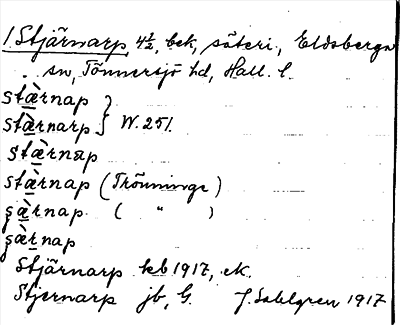 1. Stjärnarp 4½, bek, säteri, Eldsberga
sn, Tönnersjö hd, Hall. l.
stæ̀rnap
stæ̀rnarp } W. 251.
stæ̀rnap
stæ̀rnap (Trönninge)
şæ̀rnap ( " )
şæ̀rnap
Stjärnarp kb 1917, ek.
Stjernarp jb, G. J. Sahlgren 1917